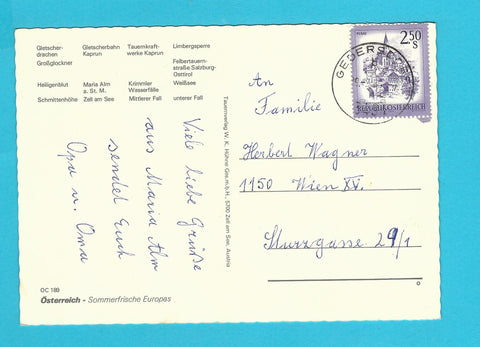 Gletscher-
drachen
Großglockner
Gletscherbahn
Kaprun
Tauernkraft-
werke Kaprun
Limbergsperre
Felbertauern-
straße Salzburg-
Osttirol
Heiligenblut
Maria Alm
a. St. M.
Krimmler
Wasserfälle
Weißsee
Schmittenhöhe
Zell am See
Mittlerer Fall
unterer Fall
Viele liebe Grüße
aus Maria Alm
sendet Euch
Opa u. Oma
OC 189
Österreich - Sommerfrische Europas
Tauernverlag W. K. Höhne Ges.m.b.H., 5700 Zell am See, Austria
2.50
S
REPUBLIK ÖSTERREICH
An
Familie
Herbert Wagner
1150 Wien XV.
Sturzgasse 29/1